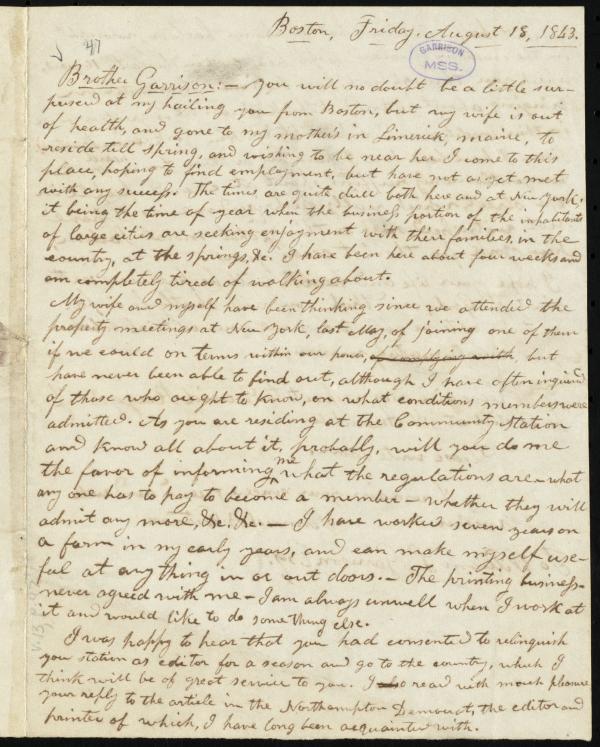 Boston, Friday, August 18, 1843.
47
GARRISON
MSS.
Brother Garrison:— You will no doubt be a little sur-
prised at my hailing you from Boston, but my wife is out
of health, and gone to my mother's in Limerick, Maine, to
reside till spring, and wishing to be near her I come to this
place, hoping to find employment, but have not as yet met
with any success. The times are quite dull both here and at New York,
it being the time of year when the business portion of the inhabitants
of large cities are seeking enjoyment with their families, in the
country, at the springs, &c. I have been here about four weeks and
am completely tired of walking about.
My wife and myself have been thinking since we attended the
property meetings at New York, last May, of joining one of them
if we could on terms within our power, of complying with, but
have never been able to find out, although I have often inquired
of those who ought to know, on what conditions members were
admitted. As you are residing at the Community Station
and know all about it, probably, will you do me
the favor of informing me what the regulations are—what
any one has to pay to become a member—whether they will
admit any more, &c. &c.— I have worked seven years on
a farm in my early years, and can make myself use-
ful at anything in or out doors.— The printing business
never agreed with me—I am always unwell when I work at
it and would like to do something else.
I was happy to hear that you had consented to relinquish
your station as editor for a season and go to the country, which I
think will be of great service to you. I also read with much pleasure
your reply to the article in the Northampton Democrat, the editor and
printer of which, I have long been acquainted with.